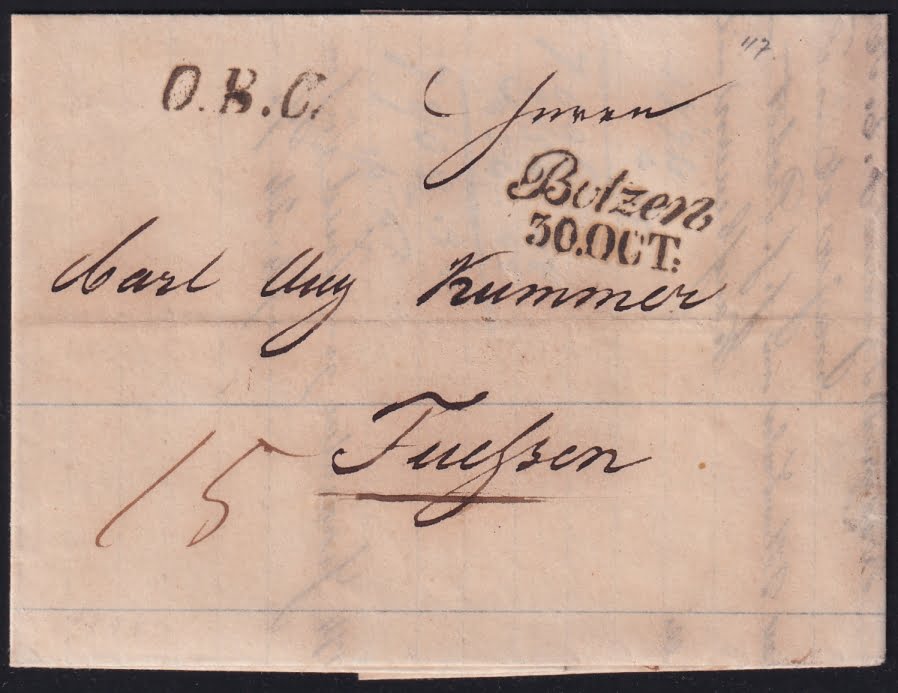 117
O.B.C.
Herrn
Botzen
30.OCT:
Carl Aug Kummer
Fueßen
15